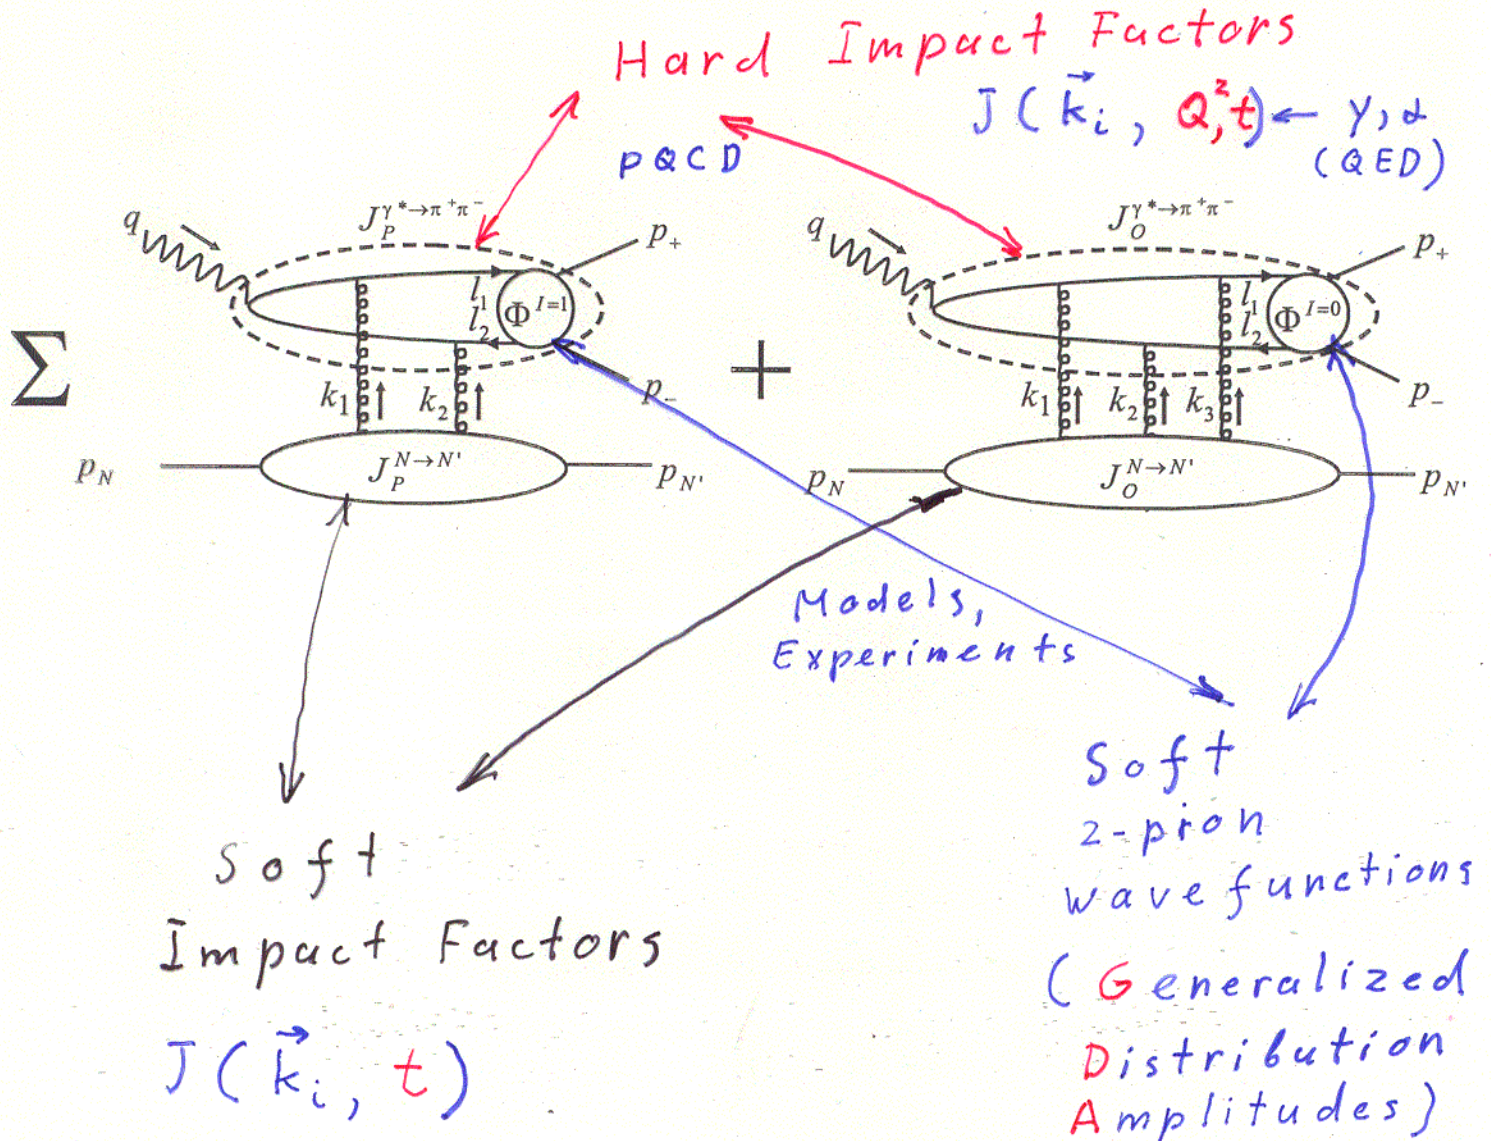 Hard Impact Factors
J(k⃗ᵢ, Q², t) ← γ, α
(QED)
pQCD
q
J_P^{γ*→π⁺π⁻}
p₊
l₁
l₂
Φ^{I=1}
p₋
k₁
k₂
p_N
J_P^{N→N'}
p_{N'}
Σ
+
q
J_O^{γ*→π⁺π⁻}
p₊
l₁
l₂
Φ^{I=0}
p₋
k₁
k₂
k₃
p_N
J_O^{N→N'}
p_{N'}
Models,
Experiments
Soft
Impact Factors
J(k⃗ᵢ, t)
Soft
2-pion
wave functions
(Generalized
Distribution
Amplitudes)